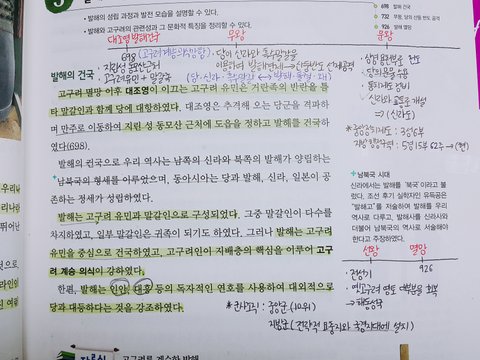 • 발해의 성립 과정과 발전 모습을 설명할 수 있다.
• 발해와 고구려의 관련성과 그 문화적 특징을 정리할 수 있다.
698 발해 건국
732 무왕, 당의 산둥 반도 공격
926 발해 멸망
대조영 발해건국
무왕
문왕
698 (고구려계승의식표방)
• 지린성 동모산 근처
• 고구려유민 + 말갈족
당이 신라와 흑수말갈을
이용하여 발해견제 → 산둥반도 선제공격
• 상경용천부로 천도
• 당의 문물 수용
• 통치제도 정비
• 신라와 교통로 개설
⇒ (신라도)
*중앙정치제도: 3성 6부
지방행정구역: 5경 15부 62주
발해의 건국
고구려 멸망 이후 대조영이 이끄는 고구려 유민은 거란족의 반란을 틈
타 말갈인과 함께 당에 대항하였다. 대조영은 추격해 오는 당군을 격파하
며 만주로 이동하여 지린 성 동모산 근처에 도읍을 정하고 발해를 건국하
였다(698).
발해의 건국으로 우리 역사는 남쪽의 신라와 북쪽의 발해가 양립하는
남북국의 형세를 이루었으며, 동아시아는 당과 발해, 신라, 일본이 공
존하는 정세가 성립하였다.
발해는 고구려 유민과 말갈인으로 구성되었다. 그중 말갈인이 다수를
차지하였고, 일부 말갈인은 귀족이 되기도 하였다. 그러나 발해는 고구려
유민을 중심으로 건국하였고, 고구려인이 지배층의 핵심을 이루어 고구
려 계승 의식이 강하였다.
한편, 발해는 인안, 대흥 등의 독자적인 연호를 사용하여 대외적으로
당과 대등하다는 것을 강조하였다.
남북국 시대
신라에서는 발해를 '북국'이라고 불
렀다. 조선 후기 실학자인 유득공은
"발해고"를 저술하여 발해를 우리
역사로 다루고, 발해사를 신라사와
더불어 남북국의 역사로 서술해야
한다고 주장하였다.
선왕
멸망
926
• 전성기
• 옛 고구려 영토 대부분을 회복
→ 해동성국
*군사조직: 중앙군 (10위)
고구려를 계승한 발해